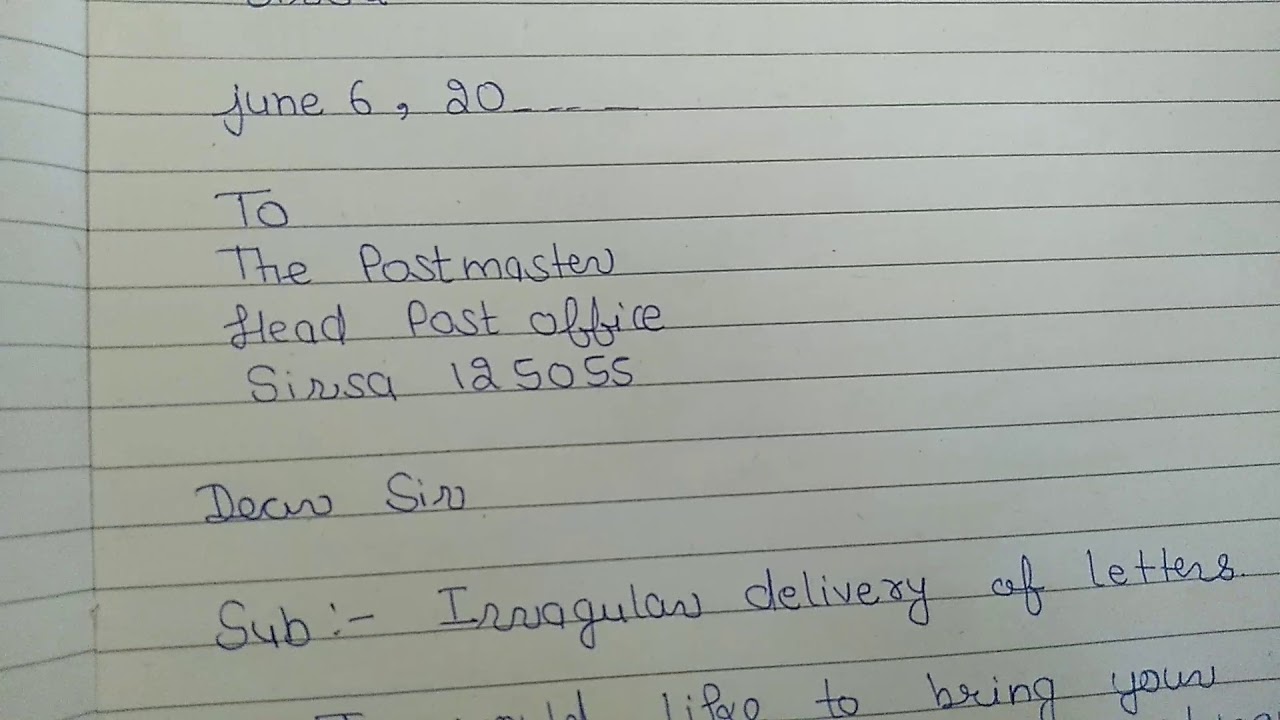 june 6, 20----
To
The Postmaster
Head Post office
Sirsa 125055
Dear Sir
Sub:- Irragular delivery of letters.
would like to bring your